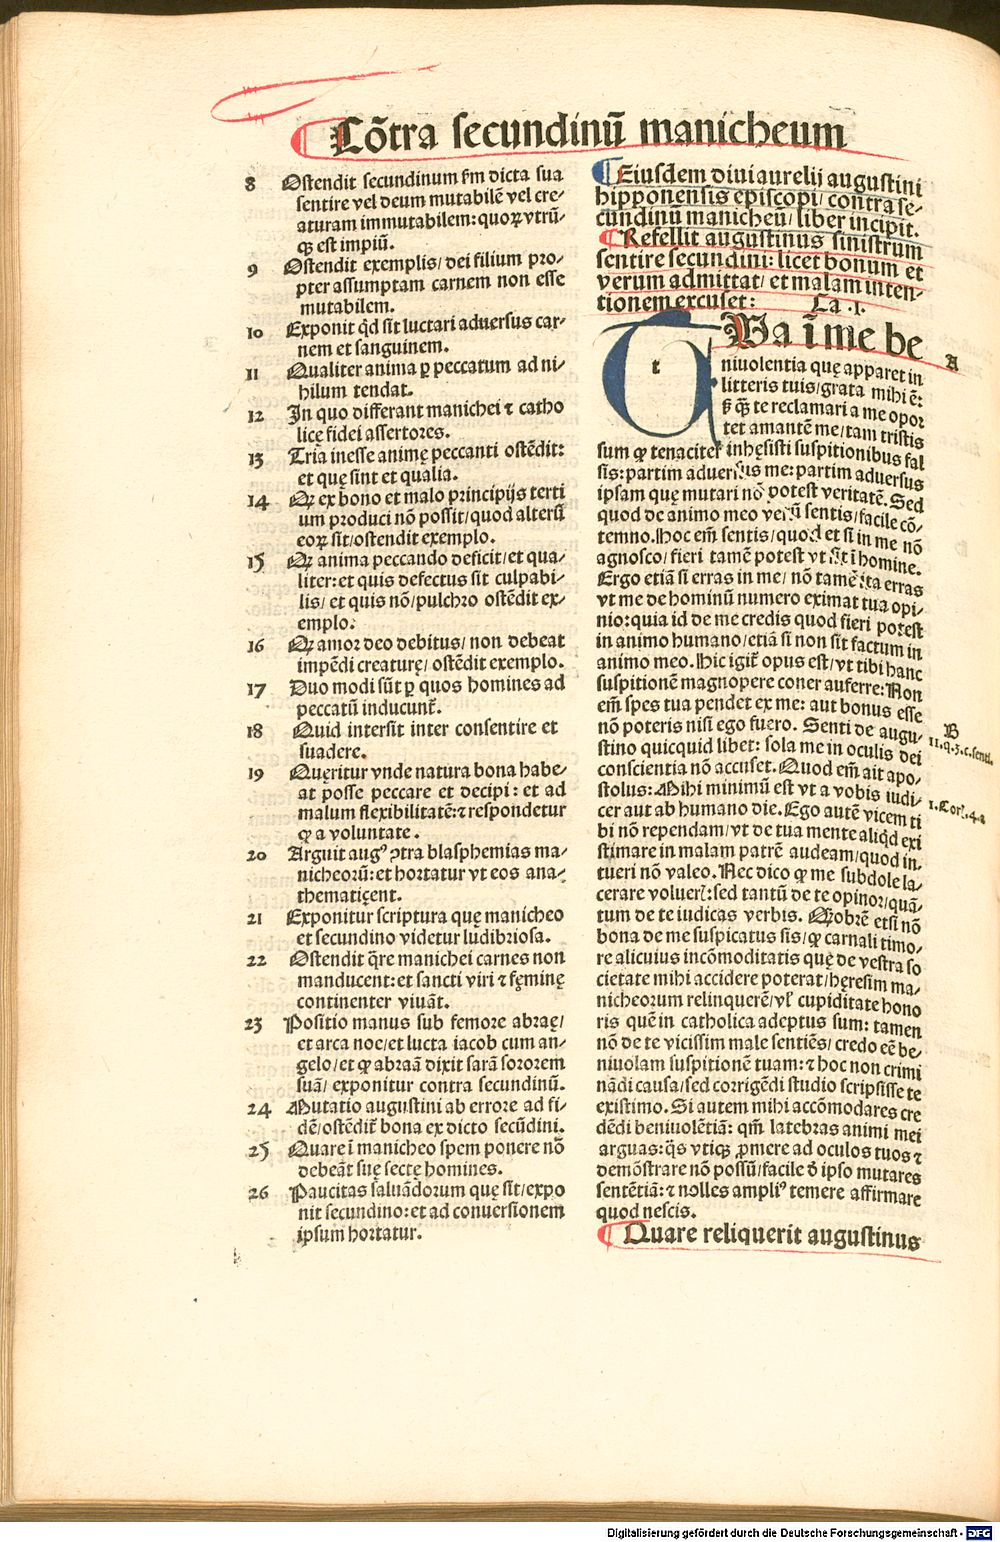 Cōtra secundinū manicheum
8 Ostendit secundinum ẜm dicta sua
sentire vel deum mutabilē vel cre⸗
aturam immutabilem: quoꝝ vtrū⸗
qꝫ est impiū.
9 Ostendit exemplis/ dei filium pro⸗
pter assumptam carnem non esse
mutabilem.
10 Exponit qd̄ sit luctari aduersus car⸗
nem et sanguinem.
11 Qualiter anima ꝑ peccatum ad ni⸗
hilum tendat.
12 In quo differant manichei ⁊ catho
licę fidei assertores.
13 Tria inesse animę peccanti ostēdit:
et quę sint et qualia.
14 Qꝛ ex bono et malo principijs terti
um produci nō possit/ quod alterū
eoꝝ sit/ ostendit exemplo.
15 Qꝛ anima peccando deficit/ et qua⸗
liter: et quis defectus sit culpabi⸗
lis/ et quis nō/ pulchro ostēdit ex⸗
emplo:
16 Qꝛ amor deo debitus/ non debeat
impēdi creaturę/ ostēdit exemplo.
17 Duo modi sūt ꝑ quos homines ad
peccatū inducunt᷑.
18 Quid intersit inter consentire et
suadere.
19 Queritur vnde natura bona habe⸗
at posse peccare et decipi: et ad
malum flexibilitatē: ⁊ respondetur
ꝙ a voluntate.
20 Arguit augꝰ ↄtra blasphemias ma⸗
nicheorū: et hortatur vt eos ana⸗
thematiçent.
21 Exponitur scriptura quę manicheo
et secundino videtur ludibriosa.
22 Ostendit q̄re manichei carnes non
manducent: et sancti viri ⁊ fęminę
continenter viuāt.
23 Positio manus sub femore abraę/
et arca noe/ et lucta iacob cum an⸗
gelo/ et ꝙ abraā dixit sarā sororem
suā/ exponitur contra secundinū.
24 Mutatio augustini ab errore ad fi⸗
dē/ ostēdit᷑ bona ex dicto secūdini.
25 Quare ī manicheo spem ponere nō
debeāt suę sectę homines.
26 Paucitas saluādorum quę sit/ expo
nit secundino: et ad conuersionem
ipsum hortatur.
Eiusdem diui aurelij augustini
hipponensis episcopi/ contra se⸗
cundinū manicheū/ liber incipit.
Refellit augustinus sinistrum
sentire secundini: licet bonum et
verum admittat/ et malam inten⸗
tionem excuset: Ca .I.
t
QVa ī me be
niuolentia quę apparet in
litteris tuis/ grata mihi ē:
ß qꝫ te reclamari a me opor
tet amantē me/ tam tristis
sum ꝙ tenaciter inhęsisti suspitionibus fal
sis: partim aduersus me: partim aduersus
ipsam quę mutari nō potest veritatē. Sed
quod de animo meo verū sentis/ facile cō⸗
temno. Hoc em̄ sentis/ quod et si in me nō
agnosco/ fieri tamē potest vt sit ī homine.
Ergo etiā si erras in me/ nō tamē ita erras
vt me de hominū numero eximat tua opi⸗
nio: quia id de me credis quod fieri potest
in animo humano/ etiā si non sit factum in
animo meo. Hic igit᷑ opus est/ vt tibi hanc
suspitionē magnopere coner auferre: Non
em̄ spes tua pendet ex me: aut bonus esse
nō poteris nisi ego fuero. Senti de augu⸗
stino quicquid libet: sola me in oculis dei
conscientia nō accuset. Quod em̄ ait apo⸗
stolus: Mihi minimū est vt a vobis iudi⸗
cer aut ab humano die. Ego autē vicem ti
bi nō rependam/ vt de tua mente aliqd exi
stimare in malam patrē audeam/ quod in⸗
tueri nō valeo. Nec dico ꝙ me subdole la⸗
cerare volueř: sed tantū de te opinor/ quā⸗
tum de te iudicas verbis. Qꝛobrē etsi nō
bona de me suspicatus sis/ ꝙ carnali timo⸗
re alicuius incōmoditatis quę de vestra so
cietate mihi accidere poterat/ hęresim ma⸗
nicheorum relinquerē/ vl̓ cupiditate hono
ris quē in catholica adeptus sum: tamen
nō de te vicissim male sentiēs/ credo eē be⸗
niuolam suspitionē tuam: ⁊ hoc non crimi
nādi causa/ sed corrigēdi studio scripsisse te
existimo. Si autem mihi accōmodares cre
dēdi beniuolētiā: qm̄ latebras animi mei
arguas: q̄s vtiqꝫ ꝓmere ad oculos tuos ⁊
demōstrare nō possū/ facile d̓ ipso mutares
sentētiā: ⁊ nolles ampliꝰ temere affirmare
quod nescis.
Quare reliquerit augustinus
A
B
11.q.3.c.senti.
1.Cor̄.4.a
Digitalisierung gefördert durch die Deutsche Forschungsgemeinschaft - DFG